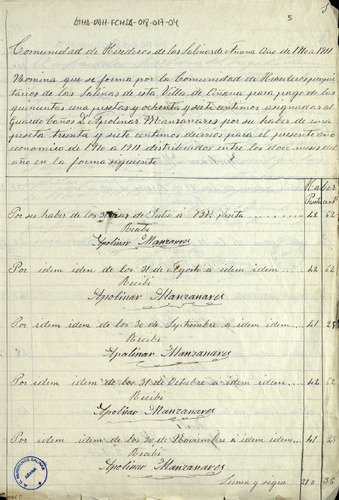 ATHA-DAH-FCHSA-018-017-04
5
Comunidad de Herederos de las Salinas de Añana Año de 1910 a 1911
Nomina que se forma por la Comunidad de Herederos propie
tarios de las Salinas de esta Villa de Añana para pago de las
quinientas una pesetas y ochenta y siete centimos asignadas al
Guarda Caños D. Apolinar Manzanares por su haber de una
peseta treinta y siete centimos diarios para el presente año
economico de 1910 a 1911 distribuidos entre los doce meses del
año en la forma siguiente
Haber
Pesetas cent
Por su haber de los 31 dias de Julio á 1'37 peseta 42 62
Recibi
Apolinar Manzanares
Por idem idem de los 31 de Agosto a idem idem 42 62
Recibi
Apolinar Manzanares
Por idem idem de los 30 de Septiembre a idem idem 41 25
Recibi
Apolinar Manzanares
Por idem idem de los 31 de Octubre a idem idem 42 62
Recibi
Apolinar Manzanares
Por idem idem de los 30 de Noviembre a idem idem 41 25
Recibi
Apolinar Manzanares
Suma y sigue 210 36